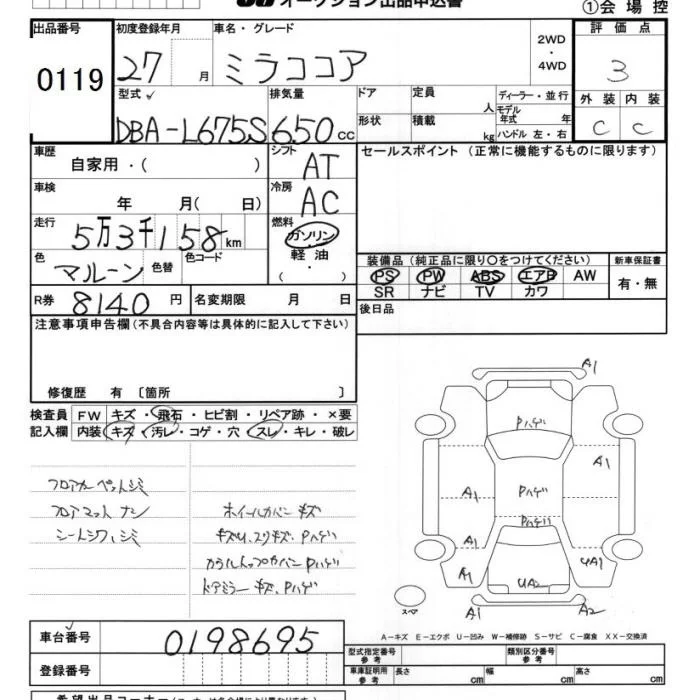 オークション出品申込書
①会場控
出品番号 0119
初度登録年月 27 月
車名・グレード ミラココア
2WD・4WD
評価点 3
外装 C 内装 C
型式 DBA-L675S
排気量 650 cc
ドア 形状
定員 人
積載 kg
ディーラー・並行
モデル年式 年
ハンドル 左・右
車歴 自家用・( )
シフト AT
セールスポイント (正常に機能するものに限ります)
車検 年 月( 日)
冷房 AC
走行 5万3千158 km
燃料 ガソリン・軽油・( )
色 マルーン 色替 色コード
装備品 (純正品に限り○をつけてください)
新車保証書 有・無
PS PW ABS エアB AW
SR ナビ TV カワ
R券 8140 円 名変期限 月 日
後日品
注意事項申告欄(不具合内容等は具体的に記入して下さい)
修復歴 有 〔箇所 〕
検査員記入欄
FW キズ・飛石・ヒビ割・リペア跡・×要
内装 キズ・汚レ・コゲ・穴・スレ・キレ・破レ
フロアカーペットシミ
フロアマットナシ
シートシワ、シミ
ホイールカバーキズ
キズU、スリキズ、Pハゲ
カウルトップカバーPハゲ
ドアミラーキズ、Pハゲ
A1
Pハゲ
A1
A1
Pハゲ
Pハゲ
A1
A1
UA1
UA2
スペア
A1
A2
A-キズ E-エクボ U-凹み W-補修跡 S-サビ C-腐食 XX-交換済
車台番号 0198695
登録番号
型式指定番号 参考
類別区分番号 参考
車庫証明用 参考
長さ cm 幅 cm 高さ cm